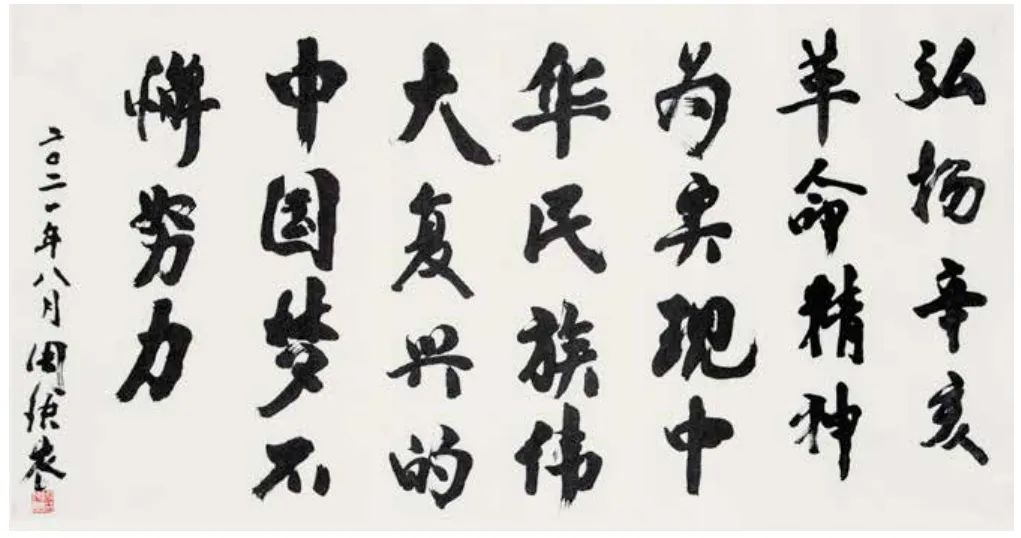 弘扬辛亥
革命精神
为实现中
华民族伟
大复兴的
中国梦不
懈努力
二〇二一年八月